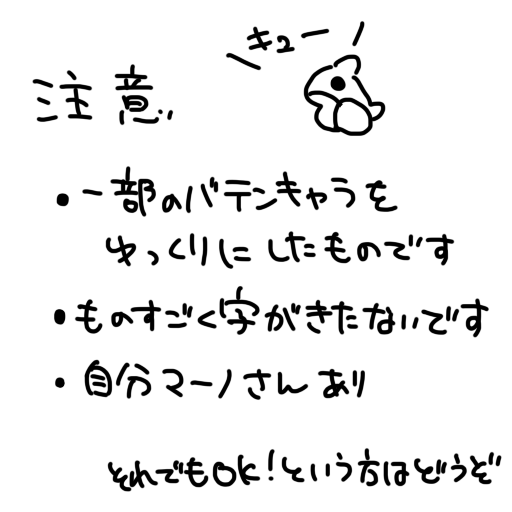 キューー
注意
・一部のバテンキャラを
ゆっくりにしたものです
・ものすごく字がきたないです
・自分マーノさんあり
それでもOK!という方はどうぞ